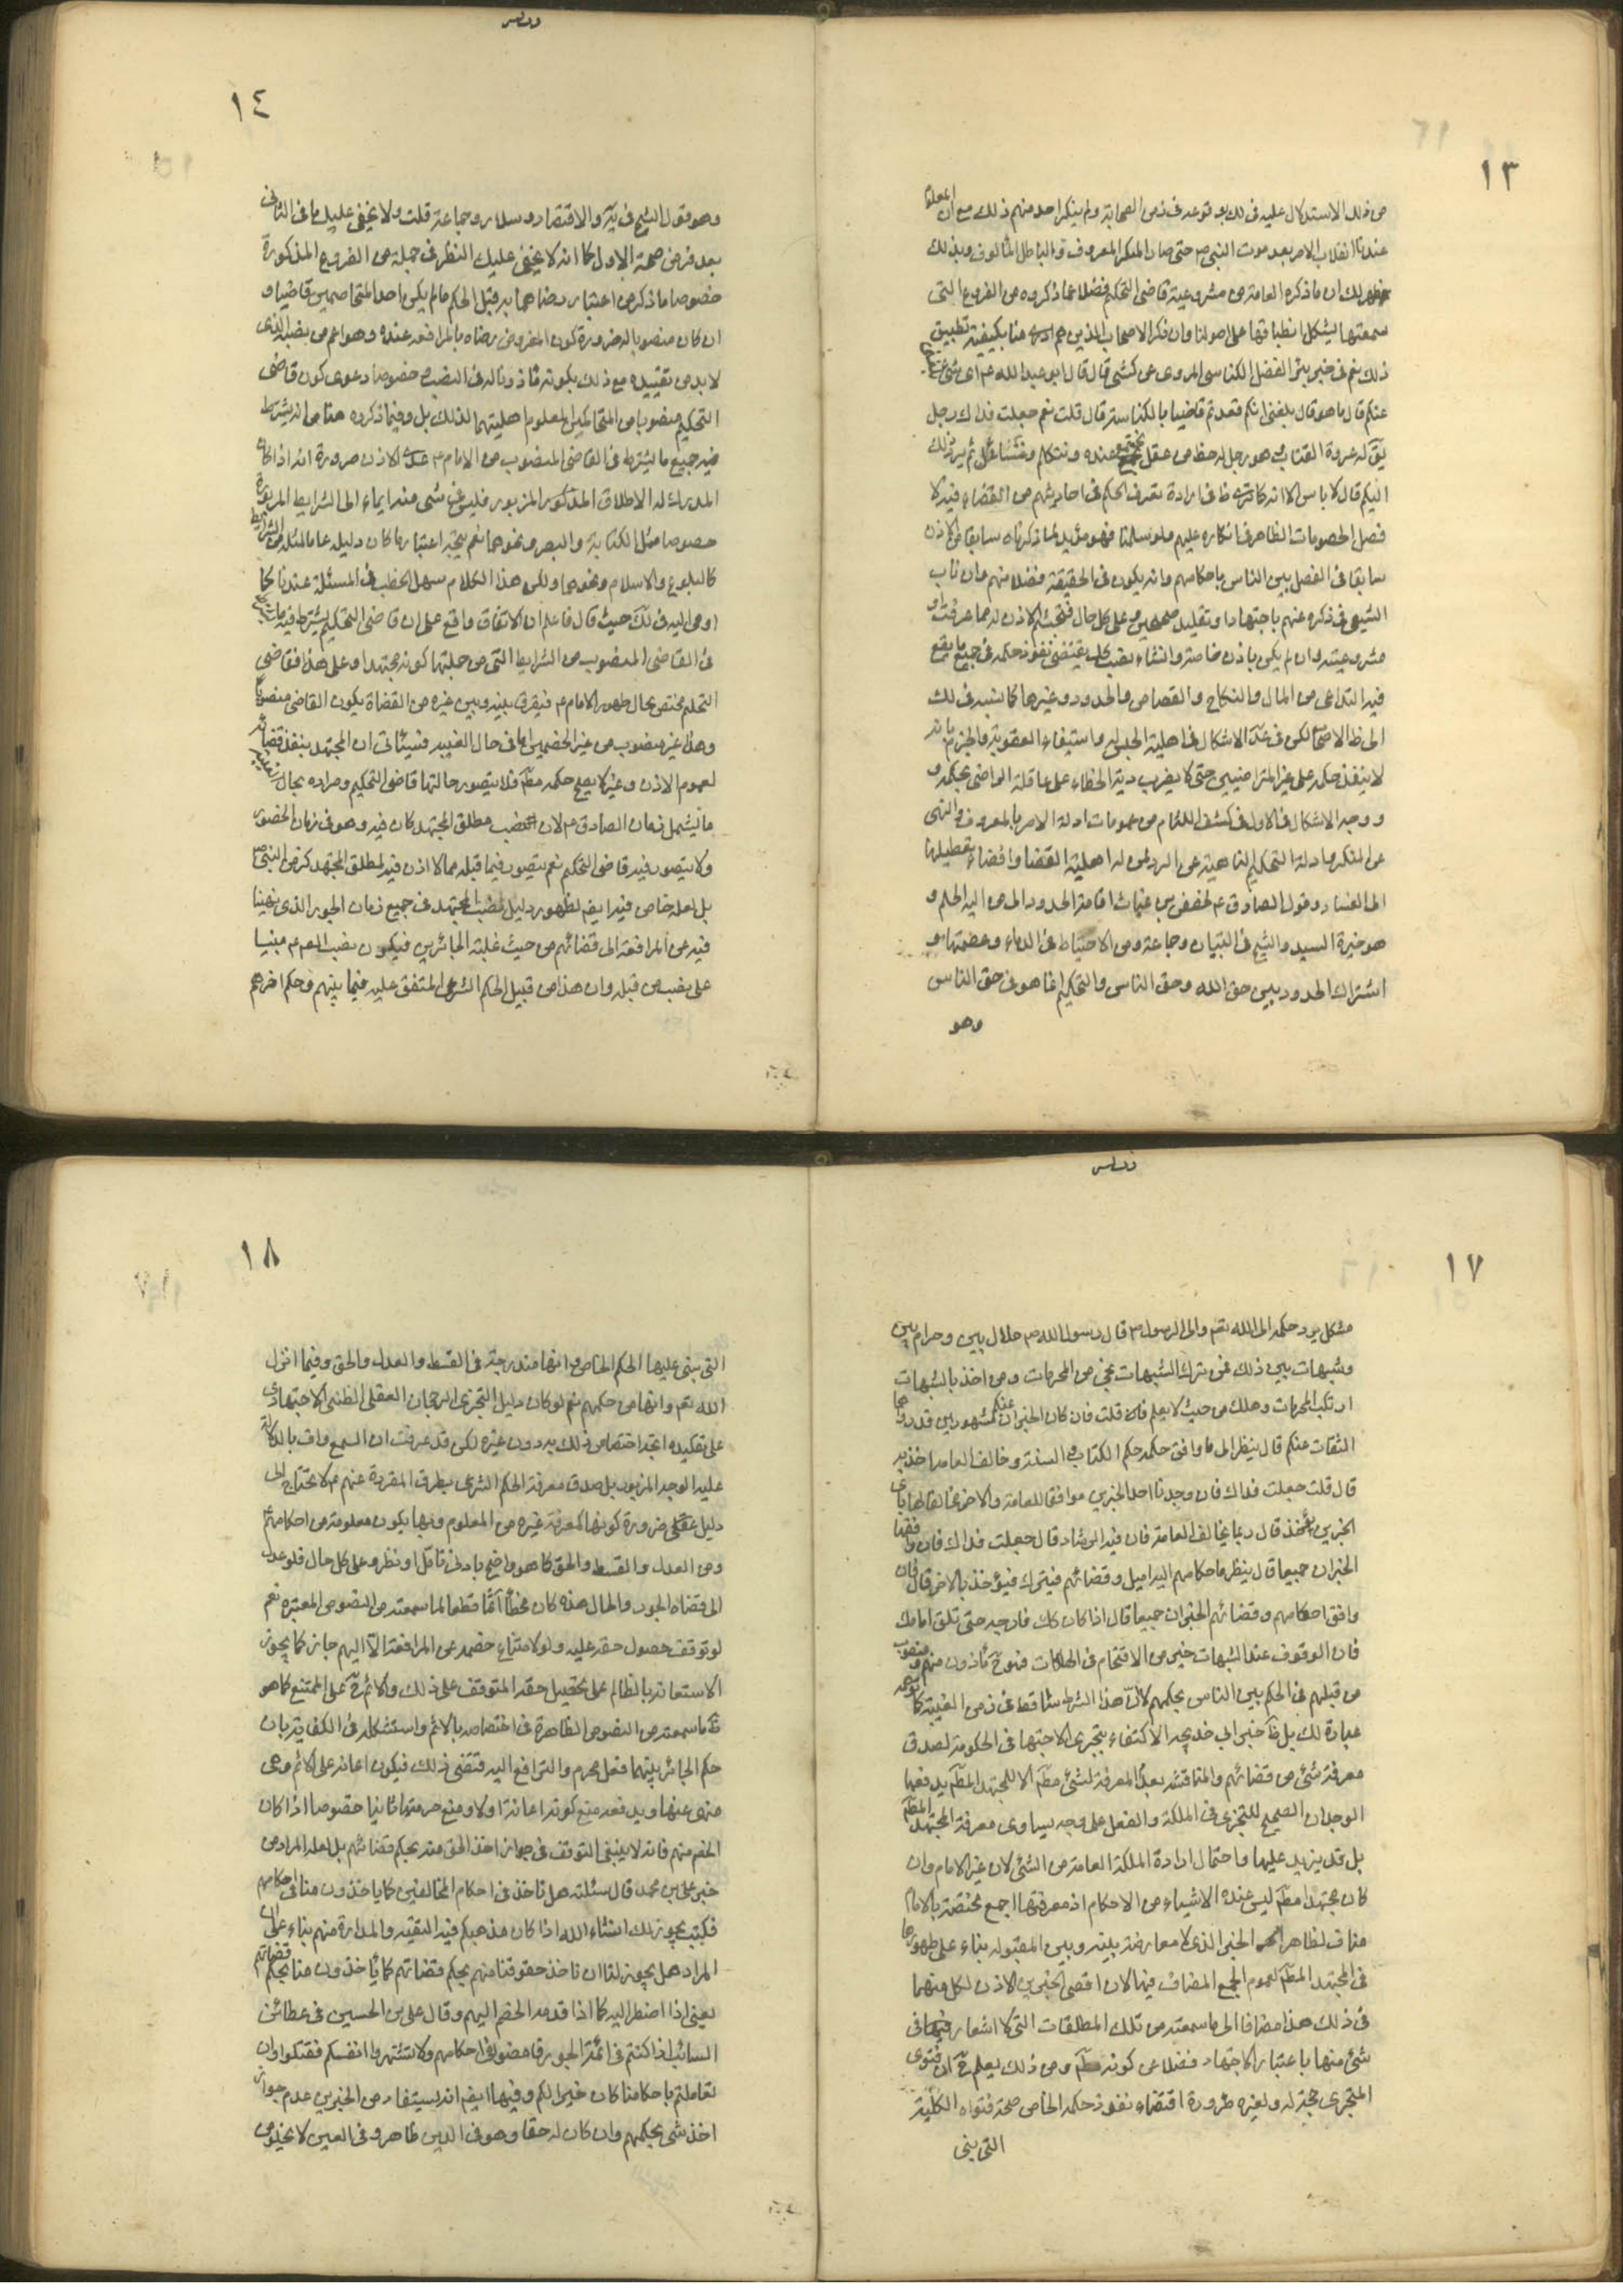 ١٣
من ذلك الاستدلال عليه في لك بوقوعه في زمن الصحابة ولم ينكر احد منهم ذلك مع ان
عندنا انقلاب الامر بعد موت النبي ص حتى صار المنكر المعروف والباطل المألوف وبذلك
ظهر لك ان ما ذكره العامة من مشروعية قاضي التحكيم فضلا عما ذكروه من الفروع التي
سمعتها يشكل انطباقها على اصولنا وان ذكر الاصحاب الذين هم ادرى منا بكيفية تطبيق
ذلك نعم في خبر الفضل الكناسي المروي عن كشي قال قال ابو عبد الله ع اي شئ
عنكم قال ما هو قال بلغني انكم قعدتم قاضيا بالكناسة قال قلت نعم جعلت فداك رجل
يق له عروة القتات هو رجل له حظ من عقل نجتمع عنده ونتكلم ونتسائل ثم يرد ذلك
اليكم قال لا باس الا انه كما ترى ظ في ارادة تعرف الحكم في احاديثهم من القضاء فيه لا
فصل الخصومات الظاهر في انكاره عليهم ولو سلمنا فهو مؤيد لما ذكرناه سابقا من الاذن
سابقا في الفصل بين الناس باحكامهم وانه يكون في الحقيقة فضلا منهم وان ناب
الشيعي في ذكره عنهم باجتهاد او تقليد صحيحين وعلى كل حال فبحث الاذن له مما عرفت او
مشروعيته وان لم يكن باذن خاصة وانشاء نصب كلي يقتضي نفوذ حكمه في جميع ما يقع
فيه التداعي من المال والنكاح والقصاص والحدود وغيرها كما نسبه في لك
الى ظ الاصحاب لكن في عد الاشكال في اهلية الحبس واستيفاء العقوبة والجزم بانه
لا ينفذ حكمه على غير المتراضيين حتى لا يضرب دية الخطاء على عاقلة الراضي بحكمه و
ووجه الاشكال في الاول في كشف اللثام من عمومات ادلة الامر بالمعروف والنهي
عن المنكر وادلة التحكيم الناهية عن الرد على من له اهلية القضا وافضاء تعطيلها
الى الفساد وقول الصادق ع لحفص بن غياث اقامة الحدود الى من اليه الحكم و
هو خيرة السيد والشيخ في التبيان وجماعة ومن الاحتياط في الدماء وعصمتها و
اشتراك الحدود بين حق الله وحق الناس والتحكيم انما هو في حق الناس
وهو
١٤
وهو قول الشيخ في ية والاقتصاد وسلار وجماعة قلت ولا يخفى عليك ما في الثاني
بعد فرض صحة الاول كما انه لا يخفى عليك النظر في جملة من الفروع المذكورة
خصوصا ما ذكر من اعتبار رضاهما به قبل الحكم ما لم يكن احد المتخاصمين قاضيا و
ان كان منصوبا لضرورة كون المفروض رضاه بالمرافعة عنده وهو اعم من نصبه الذي
لا بد من تقييده مع ذلك بكونه مأذونا له في النصب خصوصا دعوى كون قاضي
التحكيم منصوبا من المتحاكمين المعلوم اهليتهما لذلك بل وفيما ذكروه هنا من انه يشترط
فيه جميع ما يشترط في القاضي المنصوب من الامام ع عدا الاذن ضرورة انه اذا كان
المدرك له الاطلاق المذكور المزبور فليس في شئ منه ايماء الى الشرايط المزبورة
خصوصا مثل الكتابة والبصر ونحوهما نعم يتجه اعتبار ما كان دليله عاما لمثله من الشرايط
كالبلوغ والاسلام ونحوهما ولكن هذا الكلام سهل الخطب في المسئلة عندنا كما
اومى اليه في لك حيث قال فاعلم ان الاتفاق واقع على ان قاضي التحكيم يشترط فيه ما يشترط
في القاضي المنصوب من الشرايط التي من جملتها كونه مجتهدا وعلى هذا فقاضي
التحكيم مختص بحال حضور الامام ع فيفرق بينه وبين غيره من القضاة بكون القاضي منصوبا
وهذا غير منصوب من غير الخصمين اما في حال الغيبة فسيأتي ان المجتهد ينفذ قضائه
لعموم الاذن وغيره لا يصح حكمه مطلقا فلا يتصور حالتها قاضي التحكيم ومراده بحال
ما يشمل زمان الصادق ع لان نصب مطلق المجتهد كان فيه وهو في زمان الحضور
ولا يتصور فيه قاضي التحكيم نعم يتصور فيما قبله مما لا اذن فيه لمطلق المجتهد كزمن النبي ص
بل لعله خاص فيه ايضا لظهور دليل نصب المجتهد في جميع زمان الجور الذي نهينا
فيه عن المرافعة الى قضائهم من حيث غلبة الجائرين فيكون نصب المعصوم ع مبنيا
على نصب من قبله وان هذا من قبيل الحكم الشرعي المتفق عليه فيما بينهم وحكم اخرهم
١٧
مشكل يرد حكمه الى الله تع والى الرسول ص قال رسول الله ص حلال بين وحرام بين
وشبهات بين ذلك فمن ترك الشبهات نجى من المحرمات ومن اخذ بالشبهات
ارتكب المحرمات وهلك من حيث لا يعلم قلت فان كان الخبران عنكم مشهورين قد رواهما
الثقات عنكم قال ينظر الى ما وافق حكمه حكم الكتاب والسنة وخالف العامة اخذ به
قال قلت جعلت فداك فان وجدنا احد الخبرين موافقا للعامة والاخر مخالفا لها باي
الخبرين يؤخذ قال بما يخالف العامة فان فيه الرشاد قال جعلت فداك فان وافقها
الخبران جميعا قال ينظر ما حكامهم اليه اميل وقضائهم فيترك فيؤخذ بالاخر قال فان
وافق احكامهم وقضائهم الخبران جميعا قال اذا كان كك فارجه حتى تلق امامك
فان الوقوف عند الشبهات خير من الاقتحام في الهلكات فهو ح مأذون منهم ومنصوب
من قبلهم في الحكم بين الناس بحكمهم لان هذا الشرط ساقط في زمن الغيبة كما توهمه
عبارة لك بل ظ خبر ابي خديجة الاكتفاء بتجزي الاجتهاد في الحكومة لصدق
معرفة شئ من قضائهم والمناقشة بعد المعرفة لشئ مطلقا الا للمجتهد المطلق يدفعها
الوجدان الصحيح للتجزي في الملكة والفعل على وجه يساوي معرفة المجتهد المطلق
بل قد يزيد عليها واحتمال ارادة الملكة العامة من الشئ لان غير الامام وان
كان مجتهدا مطلقا ليس عنده الاشياء من الاحكام اذ معرفتها اجمع مختصة بالامام
مناف لظاهر الخبر الذي لا معارضة بينه وبين المقبولة بناء على ظهورها
في المجتهد المطلق لعموم الجمع المضاف فيها لان اقصى الخبرين الاذن لكل منهما
في ذلك هذا مضافا الى ما سمعته من تلك المطلقات التي لا اشعار في
شئ منها باعتبار الاجتهاد فضلا عن كونه مطلقا ومن ذلك يعلم ح ان فتوى
المتجزي حجة له ولغيره ضرورة اقتضاء نفوذ حكمه الخاص صحة فتواه الكلية
التي بنى
١٨
التي بنى عليها الحكم الخاص وانها مندرجة في القسط والعدل والحق وفيما انزل
الله تع وانها من حكمهم نعم لو كان دليل التجزي الرجحان العقلي الظني الاجتهادي
على تقليده اتجه اختصاص ذلك به دون غيره لكن قد عرفت ان السمع واف بالدلالة
عليه الوجه المزبور بل صدق معرفة الحكم الشرعي بطرق المقررة عنهم ع لا تحتاج الى
دليل عقلي ضرورة كونها كمعرفة غيره من المعلوم وبها يكون معلومة من احكامهم
ومن العدل والقسط والحق كما هو واضح بادنى تأمل او نظر وعلى كل حال فلو عدل
الى قضاة الجور والحال هذه كان مخطأ آثما قطعا لما سمعته من النصوص المعتبرة نعم
لو توقف حصول حقه عليه ولو لامتناع خصمه عن المرافعة الا اليهم جاز كما يجوز
الاستعانة بالظالم على تحصيل حقه المتوقف على ذلك والاثم ح على الممتنع كما هو
ظ ما سمعته من النصوص الظاهرة في اختصاصه بالاثم واستشكله في الكفاية بان
حكم الجائر بينهما فعل محرم والترافع اليه يقتضي ذلك فيكون اعانة على الاثم وهي
منهي عنها ويدفعه منع كونه اعانة اولا ومنع حرمتها ثانيا خصوصا اذا كان
الخصم منهم فانه لا ينبغي التوقف في جواز اخذ الحق منه بحكم قضائهم بل لعله المراد من
خبر علي بن محمد قال سئلته هل نأخذ في احكام المخالفين كما يأخذون منا في احكامهم
فكتب يجوز لك انشاء الله اذا كان مذهبكم فيه التقية والمداراة منهم بناء على ان
المراد هل يجوز لنا ان نأخذ حقوقنا منهم بحكم قضاتهم كما يأخذون منا بحكم قضاتهم
يعني اذا اضطر اليه كما اذا قدمه الخصم اليهم وقال علي بن الحسين في عطاء بن
السائب اذا كنتم في ائمة الجور فامضوا في احكامهم ولا تشتهروا انفسكم فتقتلوا وان
تعاملتم باحكامنا كان خيرا لكم وفيهما ايضا انه يستفاد من الخبرين عدم جواز
اخذ شئ بحكمهم وان كان له حقا وهو في الدين ظاهر وفي العين لا يخلو من